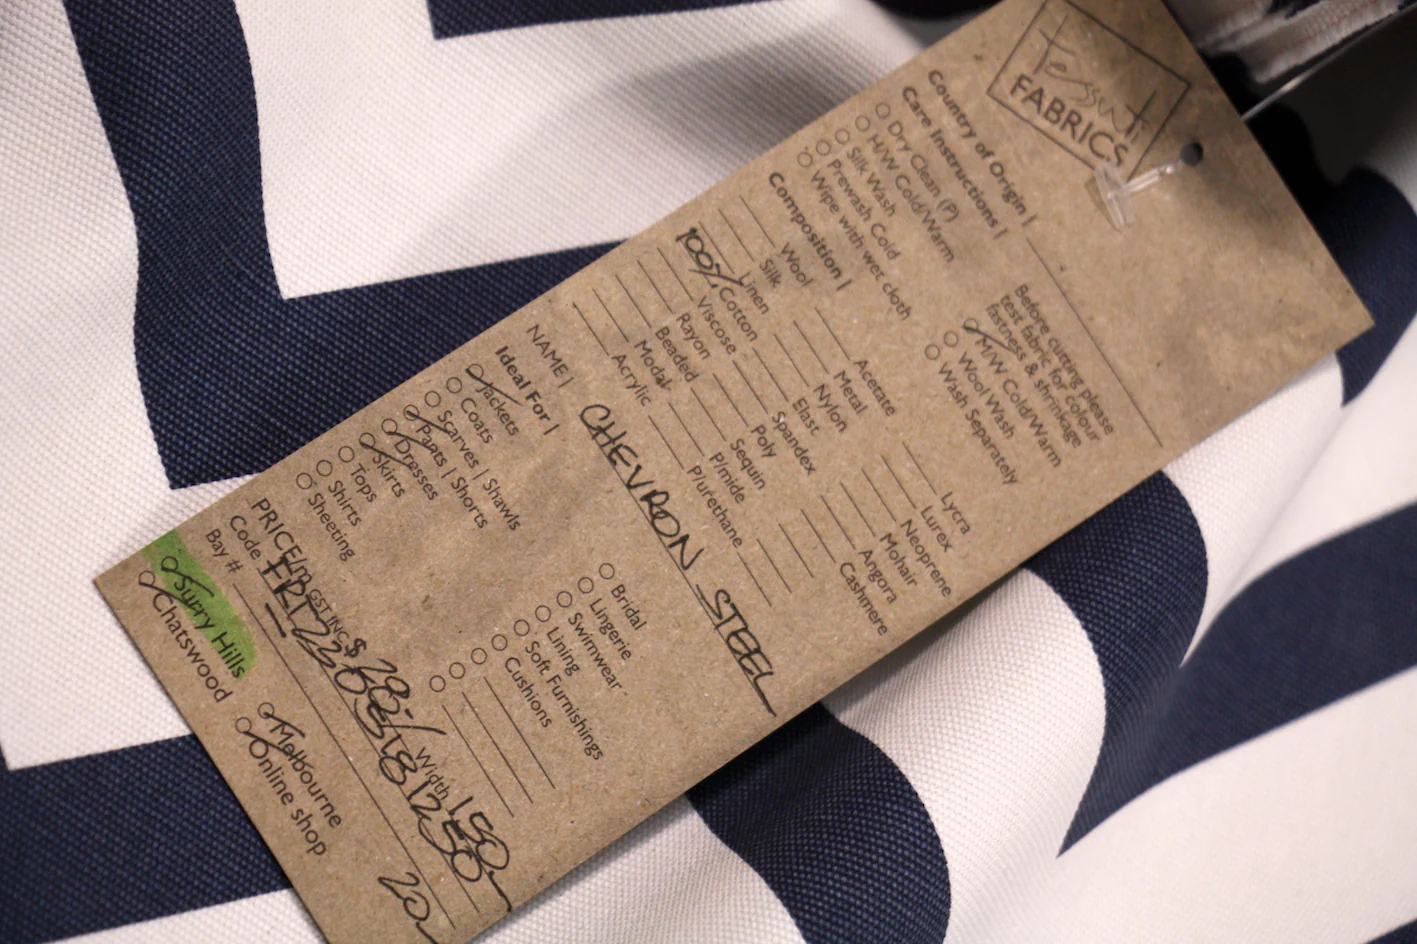 tessuti
FABRICS
Country of Origin |
Care Instructions |
Dry Clean (P)
H/W Cold/Warm
Silk Wash
Prewash Cold
Wipe with wet cloth
Before cutting please
test fabric for colour
fastness & shrinkage
M/W Cold/Warm
Wool Wash
Wash Separately
Composition |
Wool
Silk
Linen
100% Cotton
Viscose
Rayon
Beaded
Modal
Acrylic
Acetate
Metal
Nylon
Elast
Spandex
Poly
Sequin
P/mide
P/urethane
Lycra
Lurex
Neoprene
Mohair
Angora
Cashmere
NAME | CHEVRON STEEL
Ideal For |
Jackets
Coats
Scarves | Shawls
Pants | Shorts
Dresses
Skirts
Tops
Shirts
Sheeting
Bridal
Lingerie
Swimwear
Lining
Soft Furnishings
Cushions
PRICE/m GST INC $ Width 150
Code
Bay # 20
Surry Hills
Chatswood
Melbourne
Online shop